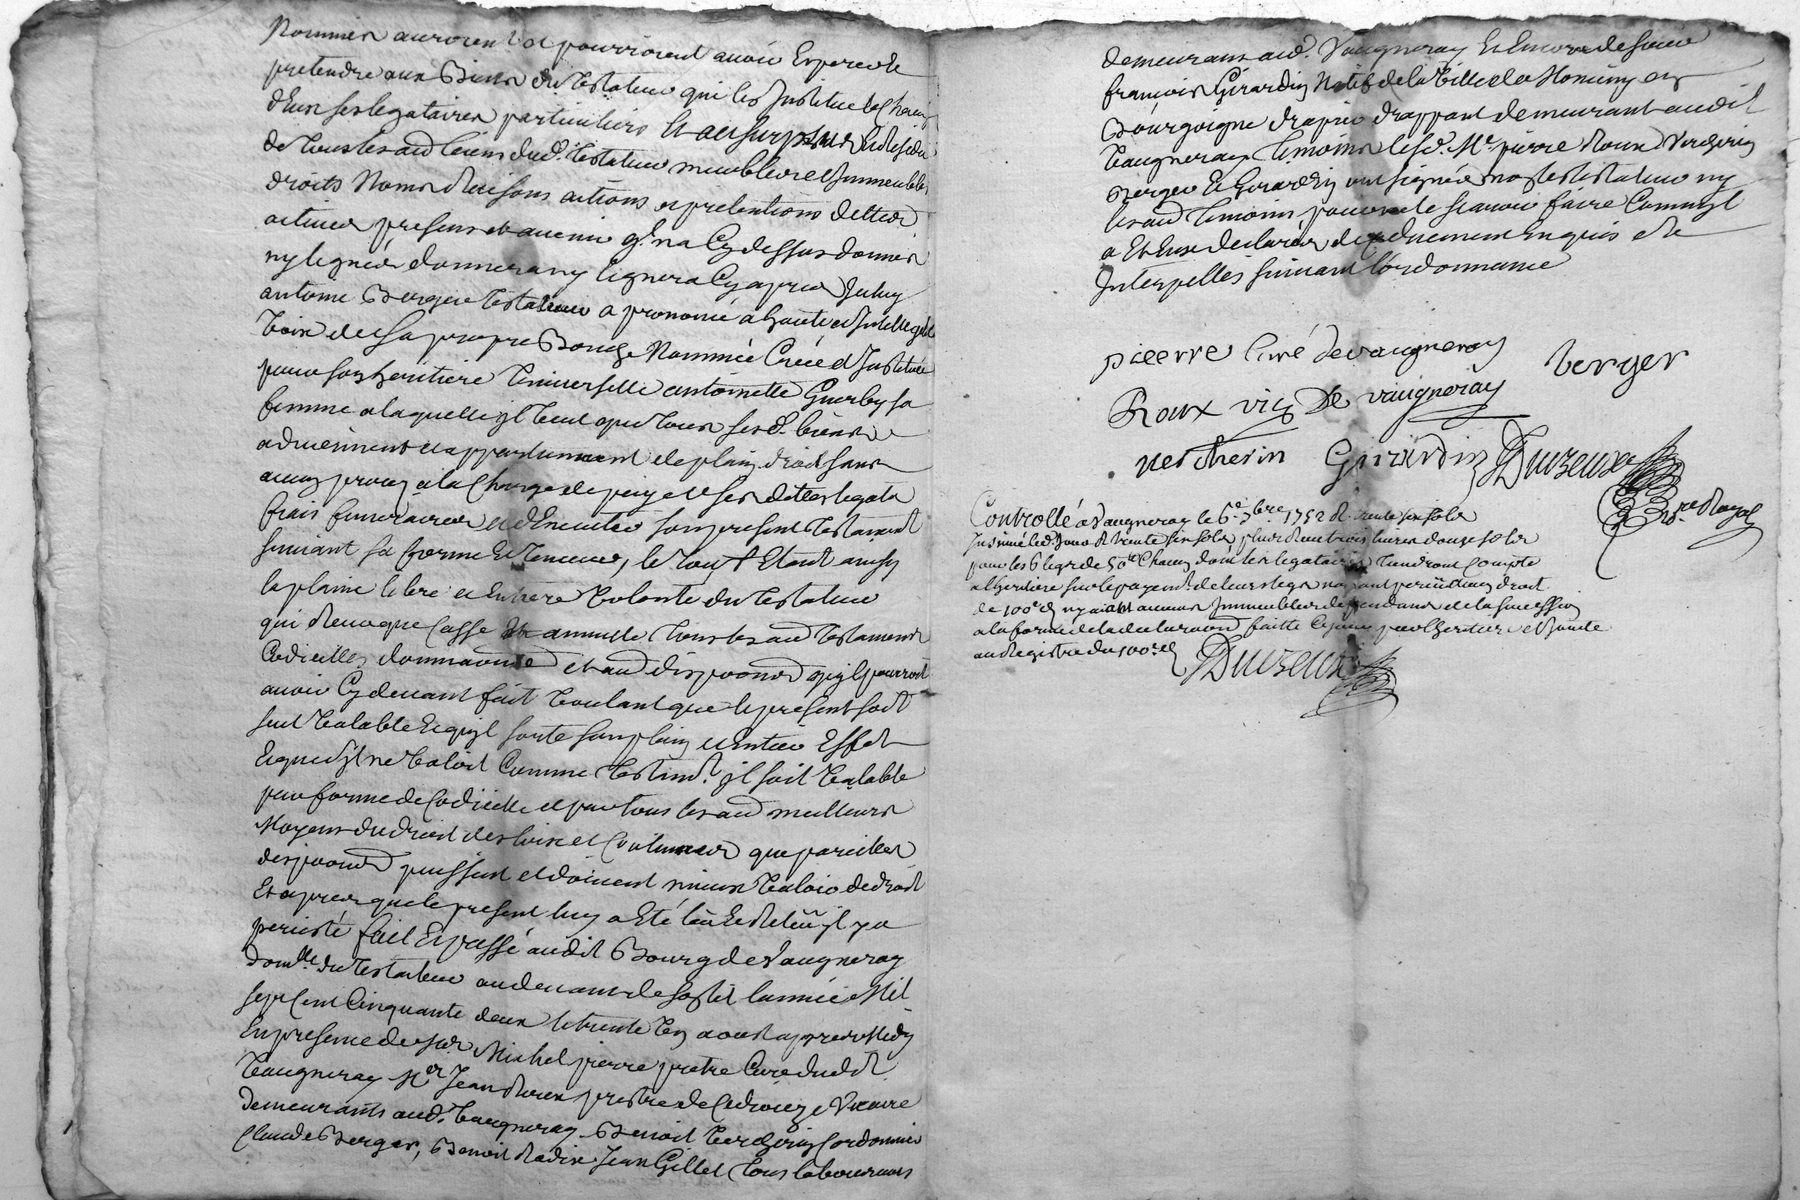 Nommés auroient et pourroient avoir Esperer et
pretendre aux Biens du Testateur qui les Institue chacun
d'Eux ses legataires particuliers Et au surplus Et Residu
de tous les aud biens dud. Testateur meubles et Immeubles
droits Noms Raisons actions et pretentions dettes
actives presens et avenir qil na Cy dessus donnés
ny legués donnera ny leguera Cy apres Iceluy
antoine Berger Testateur a prononcé a haute et Intelligible
voix de sa propre Bouche Nommée Créée et Instituée
pour son heritiere Universelle antoinette Guerby sa
femme a laquelle il veut que tous ses d. biens
adviennent et appartiennent de plain droit sans
aucun procez a la Charge de payer ses dettes legats
frais funeraires et d'Executer son present Testament
suivant sa forme Et Teneur, le tout Etant ainsy
la plaine libre et Entiere volonté du Testateur
qui Revoque Casse Et annulle tous les aud Testamens
Codicilles donnaons et aud disposons qu'il pourroit
avoir Cy devant fait voulant que le present soit
seul valable Et qu'il sorte son plain et entier Effet
Et que s'il ne valoit Comme Testamt. il soit valable
par forme de Codicille et par tous les aud meilleurs
Moyens du droit des loix et Coutumes que pareilles
disposons puissent et doivent mieux valoir de droit
Et apres que le present luy a Eté leü Et Releü il y a
persisté fait Et passé audit Bourg de Vaugneray
domlle. du Testateur au devant de son lit l'année Mil
sept Cent Cinquante deux le trente un aoust apres Midy
En presence de sr. Michel pierre pretre Curé dudit
Vaugneray Mre Jean Roux prestre et vicaire
demeurants aud. Vaugneray Benoit Vercherin Cordonnier
Claude Berger, Benoit Radix Jean Gillet tous laboureurs
demeurans aud. Vaugneray Et Encore de sieur
françois Girardin Natif de la Ville de en
Bourgoigne drapier drappant demeurant audit
Vaugneray temoins led. Mre. pierre Roux Vercherin
Berger Et Girardin ont signés non le testateur ny
les aud temoins pour ne le sçavoir faire Comme il
a Et Eux declarés de ce duement Enquis et
Interpellés suivant l'ordonnance
pierre Curé de vaugneray
berger
Roux vic De vaugneray
vercherin Girardin Duvzeux
Nre Royal
Controllé a Vaugneray le 6e 7bre 1752 R. trente six sols
Insinué led. jour R trente six sols plus Reçu trois livres douze sols
pour les 6 legs de 50# Chacun dont les legataires tiendront Compte
a l'heritiere sur le payemt. de leurs legs nayant perçu aucun droit
de 100e. ny aiant aucuns Immeubles dependans de la succession
a la forme de la declaration faitte Ce jour par l'heritiere et
au Registre du 100e.
Duvzeux